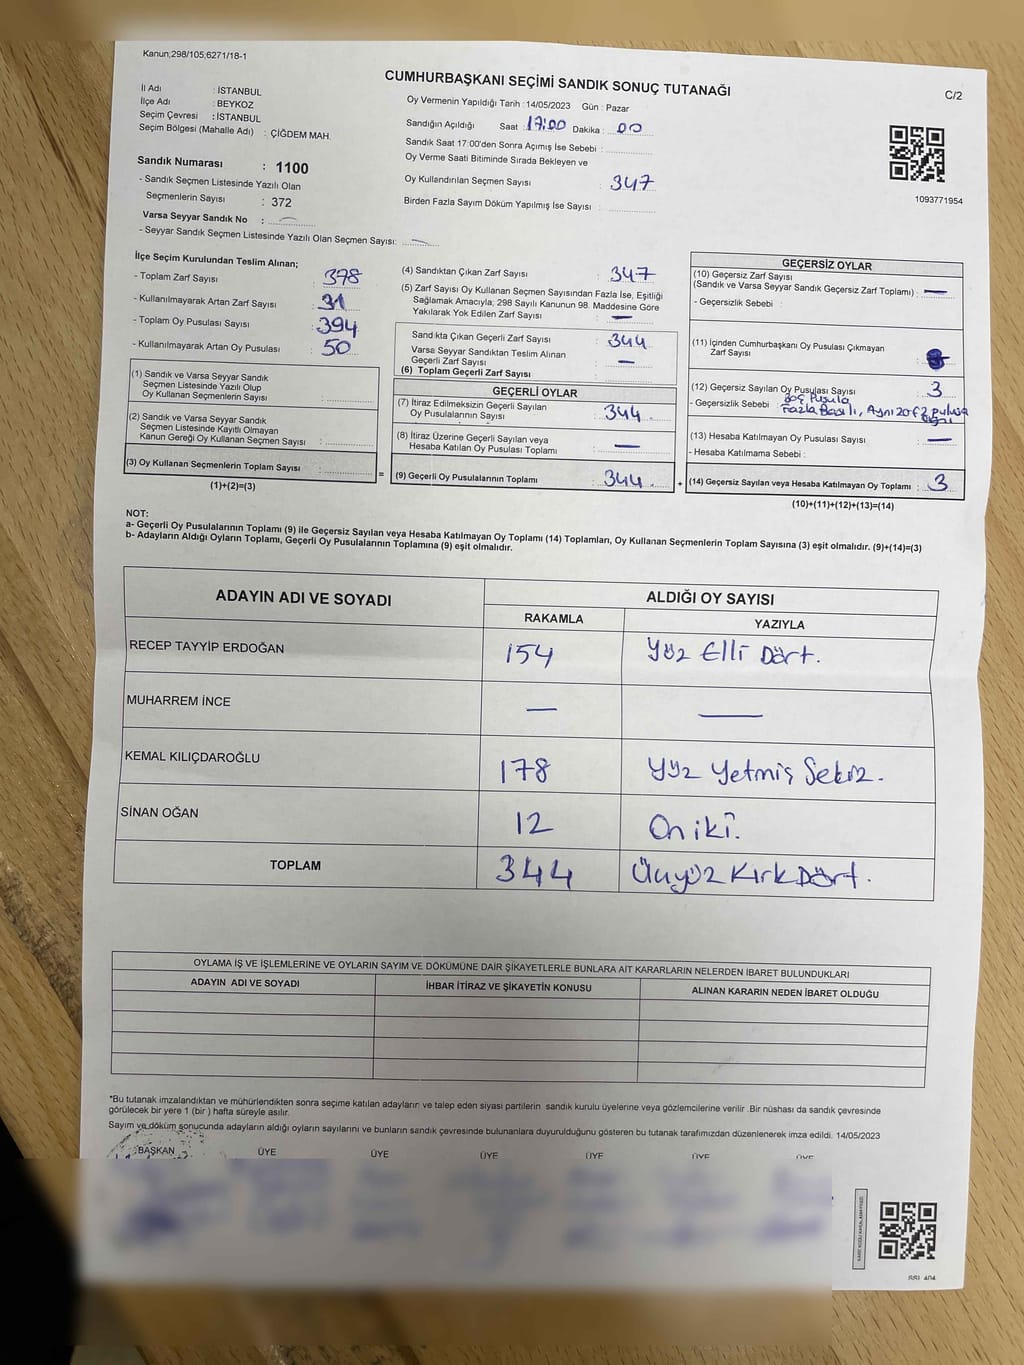 Kanun;298/105;6271/18-1
CUMHURBAŞKANI SEÇİMİ SANDIK SONUÇ TUTANAĞI
C/2
İl Adı : İSTANBUL
İlçe Adı : BEYKOZ
Seçim Çevresi : İSTANBUL
Seçim Bölgesi (Mahalle Adı) : ÇİĞDEM MAH.
Sandık Numarası : 1100
- Sandık Seçmen Listesinde Yazılı Olan
Seçmenlerin Sayısı : 372
Varsa Seyyar Sandık No :
- Seyyar Sandık Seçmen Listesinde Yazılı Olan Seçmen Sayısı:
Oy Vermenin Yapıldığı Tarih : 14/05/2023 Gün : Pazar
Sandığın Açıldığı Saat : 17:00 Dakika : 00
Sandık Saat 17:00'den Sonra Açımış İse Sebebi :
Oy Verme Saati Bitiminde Sırada Bekleyen ve
Oy Kullandırılan Seçmen Sayısı : 347
Birden Fazla Sayım Döküm Yapılmış İse Sayısı :
1093771954
İlçe Seçim Kurulundan Teslim Alınan;
- Toplam Zarf Sayısı : 378
- Kullanılmayarak Artan Zarf Sayısı : 31
- Toplam Oy Pusulası Sayısı : 394
- Kullanılmayarak Artan Oy Pusulası : 50
(1) Sandık ve Varsa Seyyar Sandık
Seçmen Listesinde Yazılı Olup
Oy Kullanan Seçmenlerin Sayısı :
(2) Sandık ve Varsa Seyyar Sandık
Seçmen Listesinde Kayıtlı Olmayan
Kanun Gereği Oy Kullanan Seçmen Sayısı :
(3) Oy Kullanan Seçmenlerin Toplam Sayısı :
(1)+(2)=(3)
(4) Sandıktan Çıkan Zarf Sayısı : 347
(5) Zarf Sayısı Oy Kullanan Seçmen Sayısından Fazla İse, Eşitliği
Sağlamak Amacıyla; 298 Sayılı Kanunun 98. Maddesine Göre
Yakılarak Yok Edilen Zarf Sayısı : —
Sandıkta Çıkan Geçerli Zarf Sayısı : 344
Varsa Seyyar Sandıktan Teslim Alınan
Geçerli Zarf Sayısı : —
(6) Toplam Geçerli Zarf Sayısı :
GEÇERLİ OYLAR
(7) İtiraz Edilmeksizin Geçerli Sayılan
Oy Pusulalarının Sayısı : 344
(8) İtiraz Üzerine Geçerli Sayılan veya
Hesaba Katılan Oy Pusulası Toplamı : —
(9) Geçerli Oy Pusulalarının Toplamı : 344
=
+
GEÇERSİZ OYLAR
(10) Geçersiz Zarf Sayısı
(Sandık ve Varsa Seyyar Sandık Geçersiz Zarf Toplamı) : —
- Geçersizlik Sebebi :
(11) İçinden Cumhurbaşkanı Oy Pusulası Çıkmayan
Zarf Sayısı :
(12) Geçersiz Sayılan Oy Pusulası Sayısı : 3
- Geçersizlik Sebebi : Boş Pusula
Fazla Basılı, Aynı zarf 2 pulusa
(13) Hesaba Katılmayan Oy Pusulası Sayısı : —
- Hesaba Katılmama Sebebi :
(14) Geçersiz Sayılan veya Hesaba Katılmayan Oy Toplamı : 3
(10)+(11)+(12)+(13)=(14)
NOT:
a- Geçerli Oy Pusulalarının Toplamı (9) ile Geçersiz Sayılan veya Hesaba Katılmayan Oy Toplamı (14) Toplamları, Oy Kullanan Seçmenlerin Toplam Sayısına (3) eşit olmalıdır. (9)+(14)=(3)
b- Adayların Aldığı Oyların Toplamı, Geçerli Oy Pusulalarının Toplamına (9) eşit olmalıdır.
ADAYIN ADI VE SOYADI
ALDIĞI OY SAYISI
RAKAMLA YAZIYLA
RECEP TAYYİP ERDOĞAN 154 Yüz Elli Dört.
MUHARREM İNCE — —
KEMAL KILIÇDAROĞLU 178 Yüz Yetmiş Sekiz.
SİNAN OĞAN 12 On iki.
TOPLAM 344 Üçyüz Kırk Dört.
OYLAMA İŞ VE İŞLEMLERİNE VE OYLARIN SAYIM VE DÖKÜMÜNE DAİR ŞİKAYETLERLE BUNLARA AİT KARARLARIN NELERDEN İBARET BULUNDUKLARI
ADAYIN ADI VE SOYADI İHBAR İTİRAZ VE ŞİKAYETİN KONUSU ALINAN KARARIN NEDEN İBARET OLDUĞU
*Bu tutanak imzalandıktan ve mühürlendikten sonra seçime katılan adayların ve talep eden siyasi partilerin sandık kurulu üyelerine veya gözlemcilerine verilir .Bir nüshası da sandık çevresinde
görülecek bir yere 1 (bir ) hafta süreyle asılır.
Sayım ve döküm sonucunda adayların aldığı oyların sayılarını ve bunların sandık çevresinde bulunanlara duyurulduğunu gösteren bu tutanak tarafımızdan düzenlenerek imza edildi. 14/05/2023
BAŞKAN ÜYE ÜYE ÜYE ÜYE ÜYE ÜYE